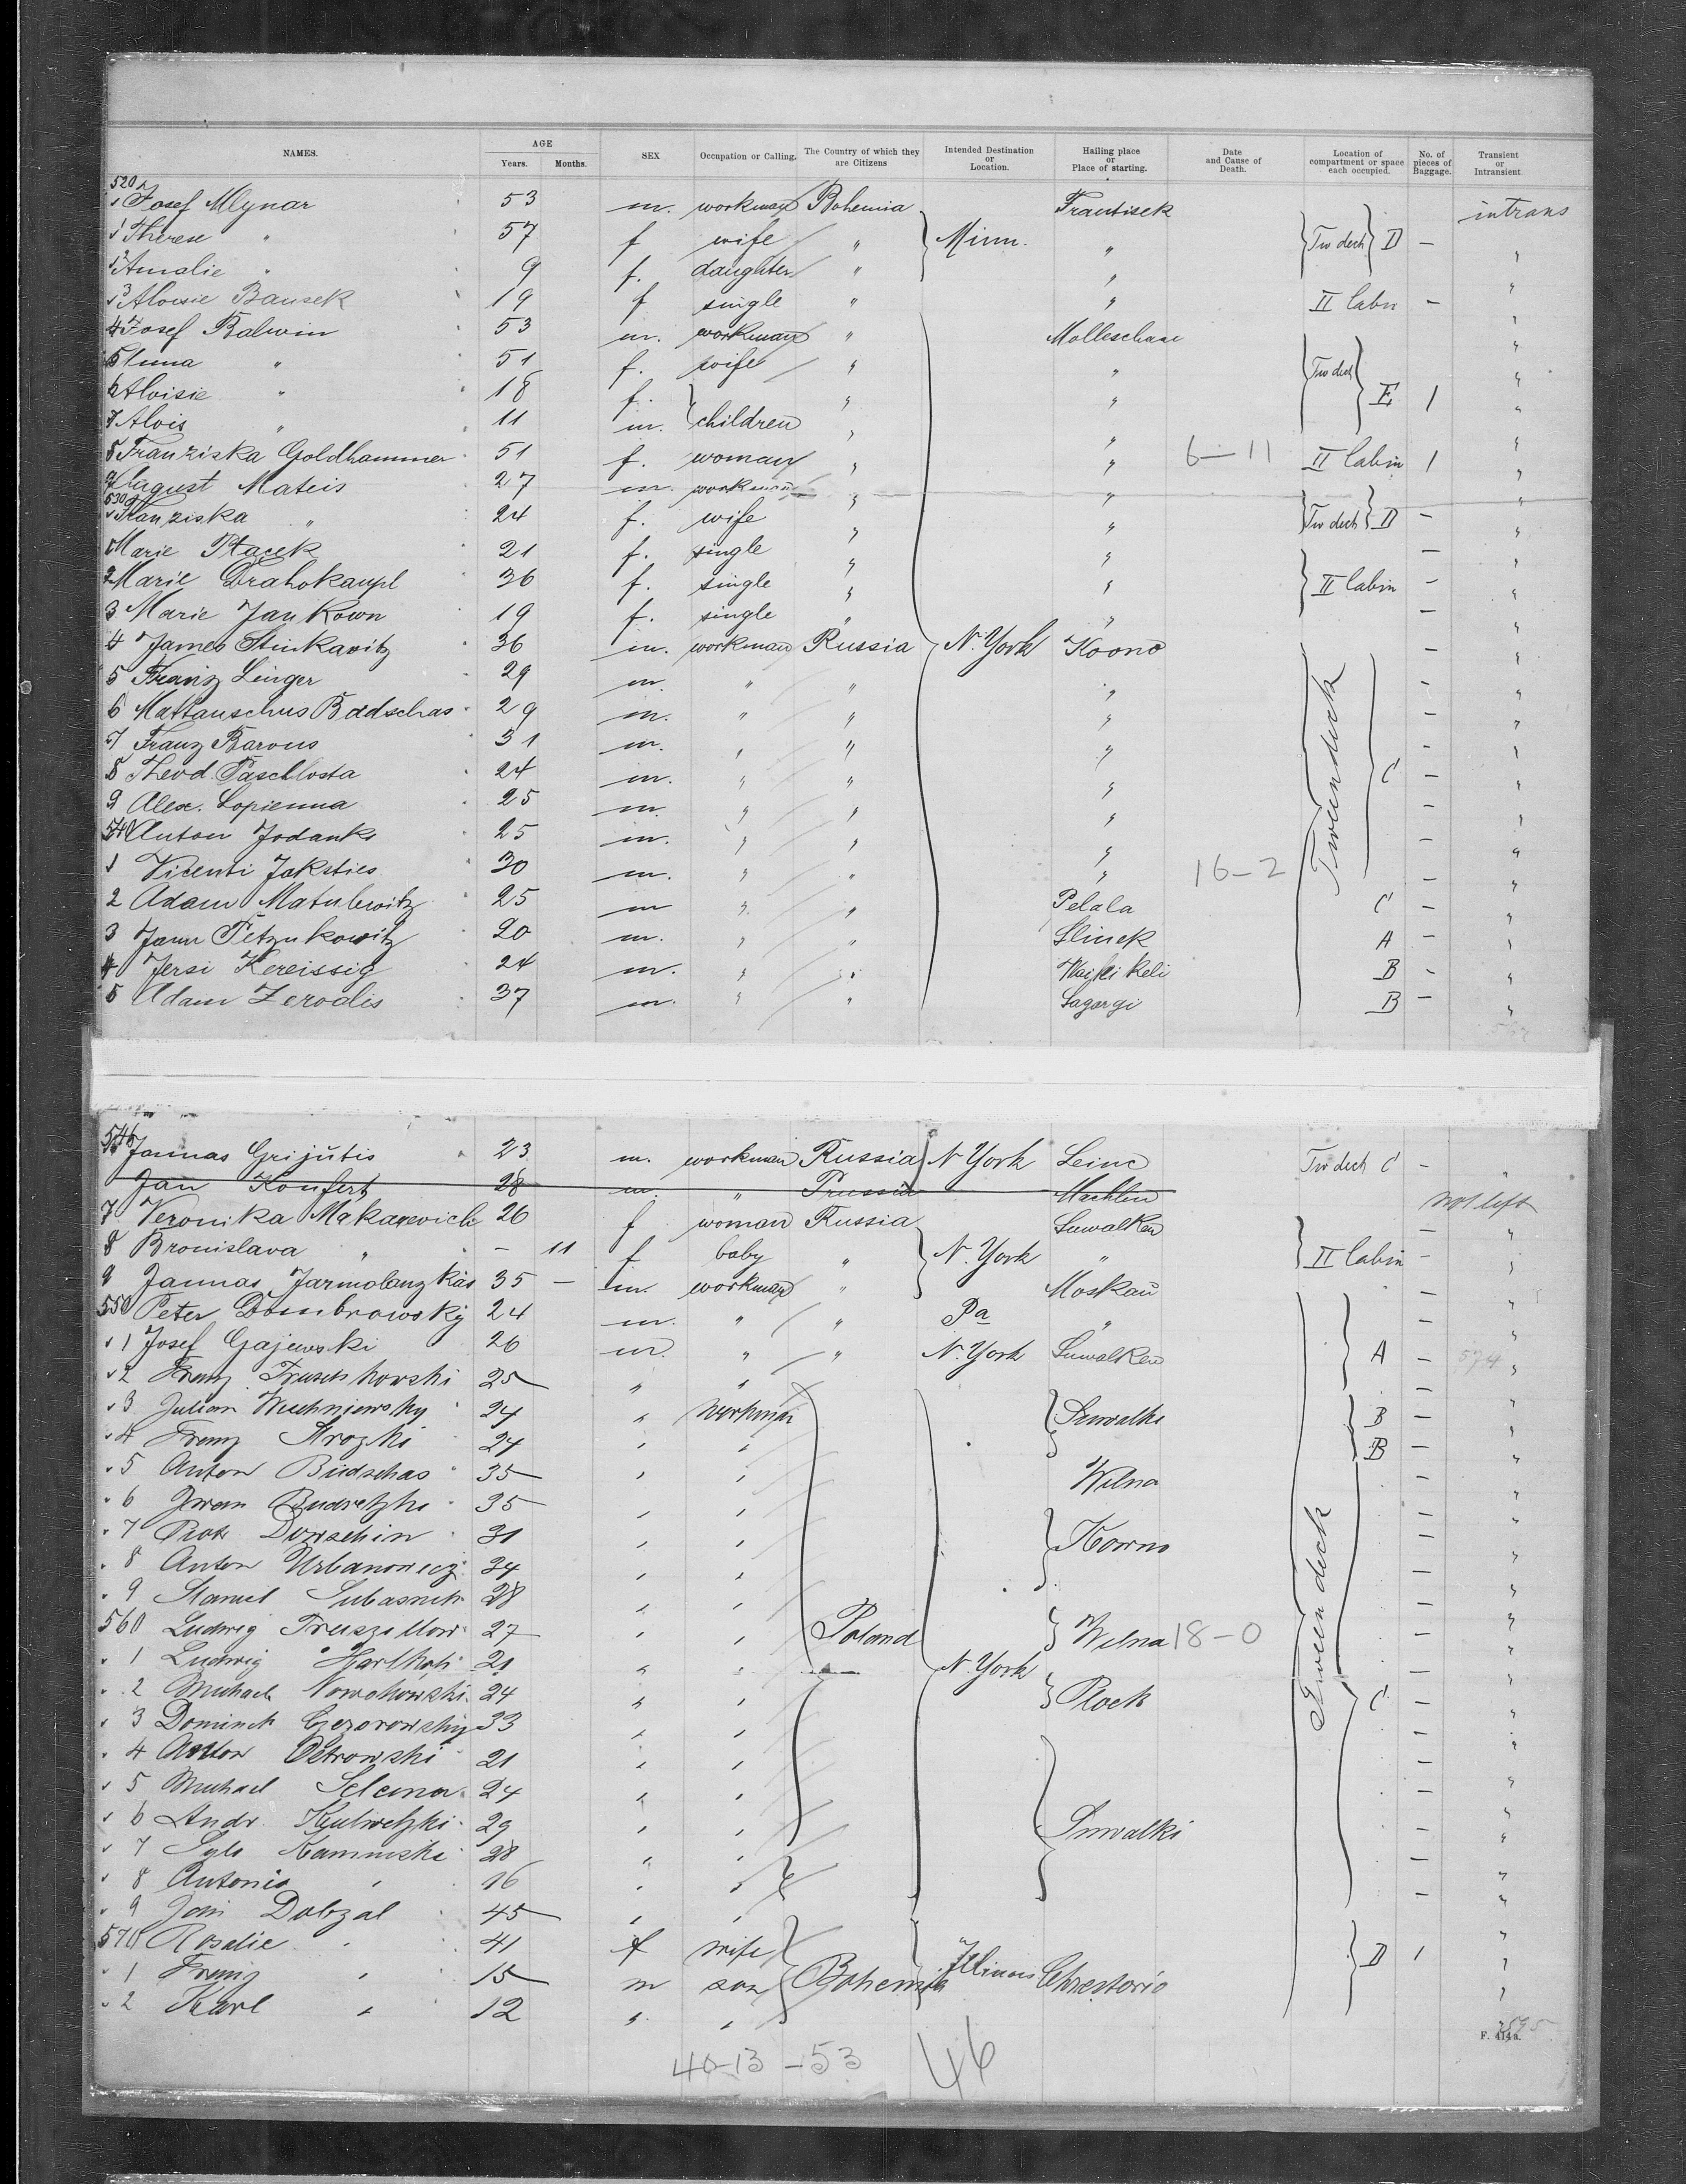 NAMES. AGE Years. Months. SEX Occupation or Calling. The Country of which they are Citizens Intended Destination or Location. Hailing place or Place of starting. Date and Cause of Death. Location of compartment or space each occupied. No. of pieces of Baggage. Transient or Intransient.
520 Josef Mlynar 53 m. workman Bohemia Frantisek intrans
1 Therese " 57 f wife " Minn. " Tw deck D - "
2 Amalie " 9 f. daughter " " "
3 Aloisie Bausek 19 f single " " II Cabn - "
4 Josef Balwin 53 m. workman " Molleschau "
5 Anna " 51 f. wife " " Tw deck "
6 Aloisie " 18 f. children " " E 1 "
7 Alois " 11 m. " " "
8 Franziska Goldhammer 51 f. woman " " 6-11 II Cabin 1 "
9 August Mateis 27 m. workman " " "
530 Franziska " 24 f. wife " " Tw deck D - "
1 Marie Ptacek 21 f. single " " - "
2 Marie Drahokaupl 36 f. single " " II Cabin - "
3 Marie Jankown 19 f. single " " - "
4 James Stinkawitz 36 m. workman Russia N. York Koono - "
5 Franz Linger 29 m. " " " - "
6 Mattauschus Badschas 29 m. " " " - "
7 Franz Barous 31 m. " " " Tweendeck - "
8 Theod. Paschlosta 24 m. " " " C - "
9 Alex. Lopienna 25 m. " " " - "
540 Anton Jodanks 25 m. " " " - "
1 Vicenti Jaksties 30 m. " " " 16-2 - "
2 Adam Matulewitz 25 m " " Pelala C - "
3 Jann Petzukowitz 20 m. " " Slinek A - "
4 Jersi Kereissig 24 m. " " B - "
5 Adam Zerodis 37 m. " " Sagorgi B - "
546 Jannas Grijutis 23 m. workman Russia N York Leinc Tw deck C - "
Jan Konfert 28 m. " Prussia Machlin not left
7 Veronika Makarevich 26 f woman Russia Suwalken "
8 Bronislava " - 11 f baby " N. York " II Cabin - "
9 Jannas Jarmolanzkas 35 - m. workman " Moskau - "
550 Peter Dombrowskij 24 m. " " Pa " - "
1 Josef Gajewski 26 m. " " N. York Suwalken A - 574 "
2 Franz Truschkowski 25 " " - "
3 Julian Wuchniewsky 24 " workman Suwalki B - "
4 Franz Krozki 24 " " B - "
5 Anton Budschas 35 " " Wilna - "
6 Iwan Budretzki 35 " " - "
7 Piotr Dowschin 31 " " Kowno - "
8 Anton Urbanowicz 34 " " - "
9 28 " " - "
560 Ludwig 27 " " Poland Wilna 18-0 Tween deck - "
1 Ludwig 21 " " N. York - "
2 Michael Nowakowski 24 " " Plock C - "
3 Dominik 33 " " - "
4 Anton Ostrowski 21 " " - "
5 Michael Selema 24 " " - "
6 Andr. 29 " " Suwalki - "
7 Kaminski 28 " " - "
8 Antonia " 16 " " - "
9 Jan Dobzal 45 " " "
570 Rosalie " 41 f wife D 1 "
1 Franz " 15 m son Bohemia Illinois Chrestorio "
2 Karl " 12 " " "
F. 414a.
40-13-53 46